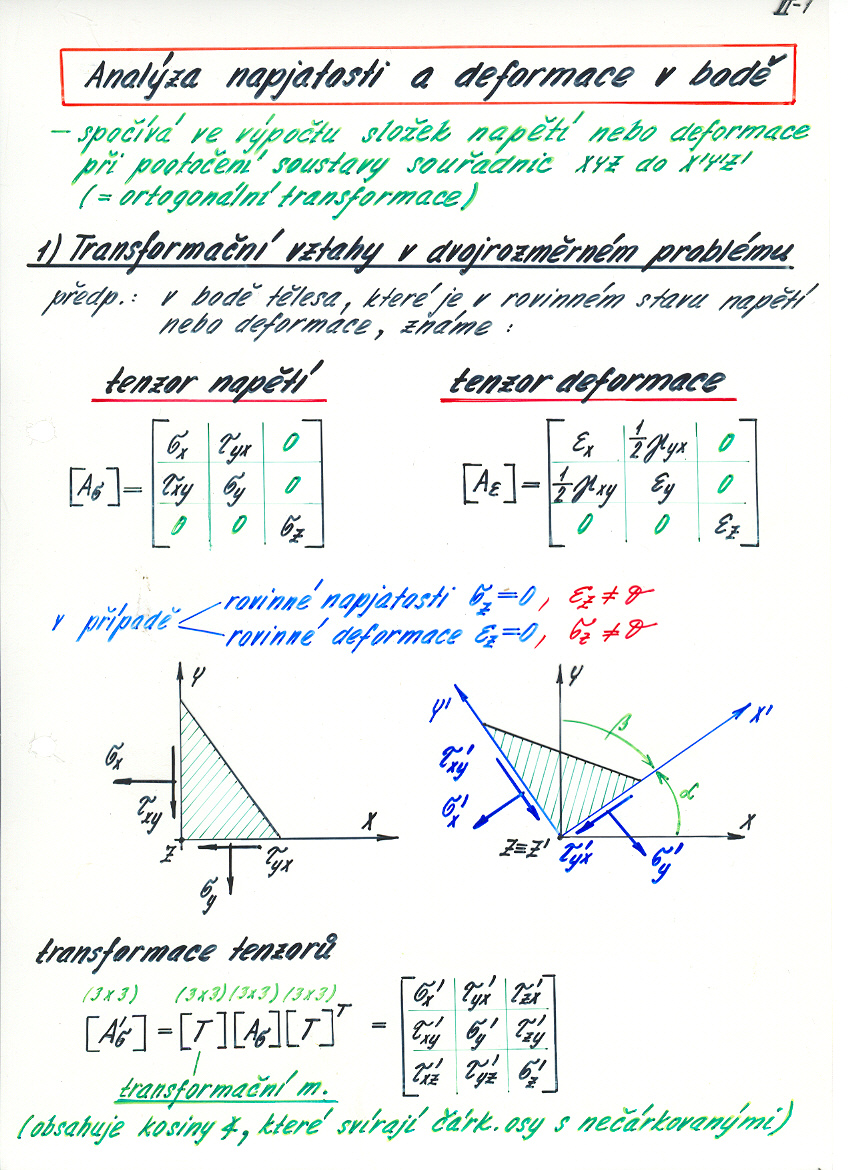 II-1
Analýza napjatosti a deformace v bodě
– spočívá ve výpočtu složek napětí nebo deformace
při pootočení soustavy souřadnic XYZ do X'Y'Z'
(= ortogonální transformace)
1) Transformační vztahy v dvojrozměrném problému
předp.: v bodě tělesa, které je v rovinném stavu napětí
nebo deformace, známe:
tenzor napětí tenzor deformace
σx τyx 0
[Aσ] = τxy σy 0
0 0 σz
εx ½γyx 0
[Aε] = ½γxy εy 0
0 0 εz
v případě
rovinné napjatosti σz = 0, εz ≠ 0
rovinné deformace εz = 0, σz ≠ 0
Y
σx
τxy
X
Z
τyx
σy
Y
Y'
X'
β
α
τ'xy
σ'x
X
Z≡Z'
τ'yx
σ'y
transformace tenzorů
(3x3) (3x3) (3x3) (3x3)
[A'σ] = [T][Aσ][T]ᵀ =
σ'x τ'yx τ'zx
τ'xy σ'y τ'zy
τ'xz τ'yz σ'z
transformační m.
(obsahuje kosiny ∢, které svírají čárk. osy s nečárkovanými)